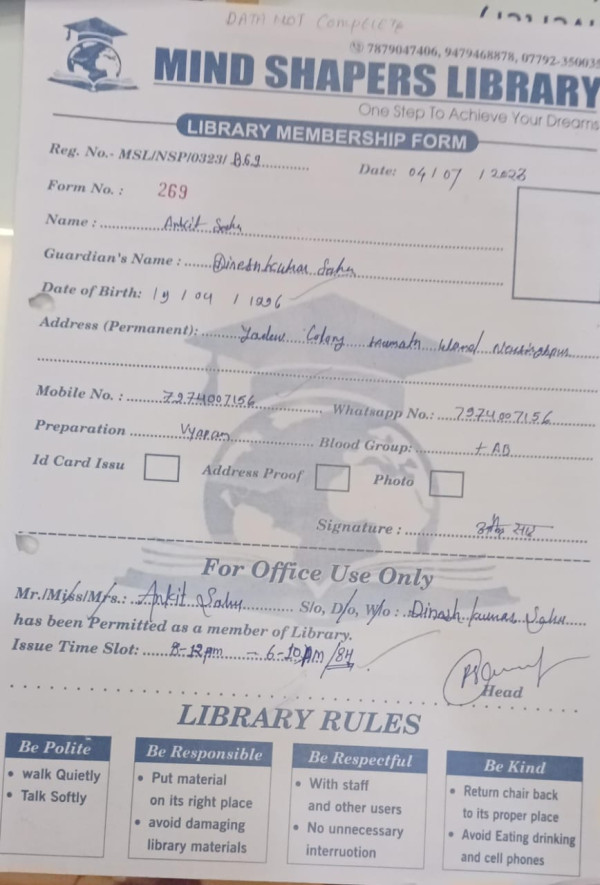 DATA NOT COMPLETE
7879047406, 9479468878, 07792-350035
MIND SHAPERS LIBRARY
One Step To Achieve Your Dreams
LIBRARY MEMBERSHIP FORM
Reg. No.- MSL/NSP/0323/ 869
Date: 04 / 07 / 2023
Form No. : 269
Name : Ankit Sahu
Guardian's Name : Dinesh kumar Sahu
Date of Birth: 19 / 04 / 1996
Address (Permanent): Yadav Colony Ward
Mobile No. : 7974007156 Whatsapp No.: 7974007156
Preparation Vyapam Blood Group: + AB
Id Card Issu Address Proof Photo
Signature :
For Office Use Only
Mr./Miss/Mrs.: Ankit Sahu S/o, D/o, W/o : Dinesh kumar Sahu
has been Permitted as a member of Library.
Issue Time Slot: 8-12pm - 6-10PM /8H
Head
LIBRARY RULES
Be Polite
• walk Quietly
• Talk Softly
Be Responsible
• Put material
on its right place
• avoid damaging
library materials
Be Respectful
• With staff
and other users
• No unnecessary
interruotion
Be Kind
• Return chair back
to its proper place
• Avoid Eating drinking
and cell phones